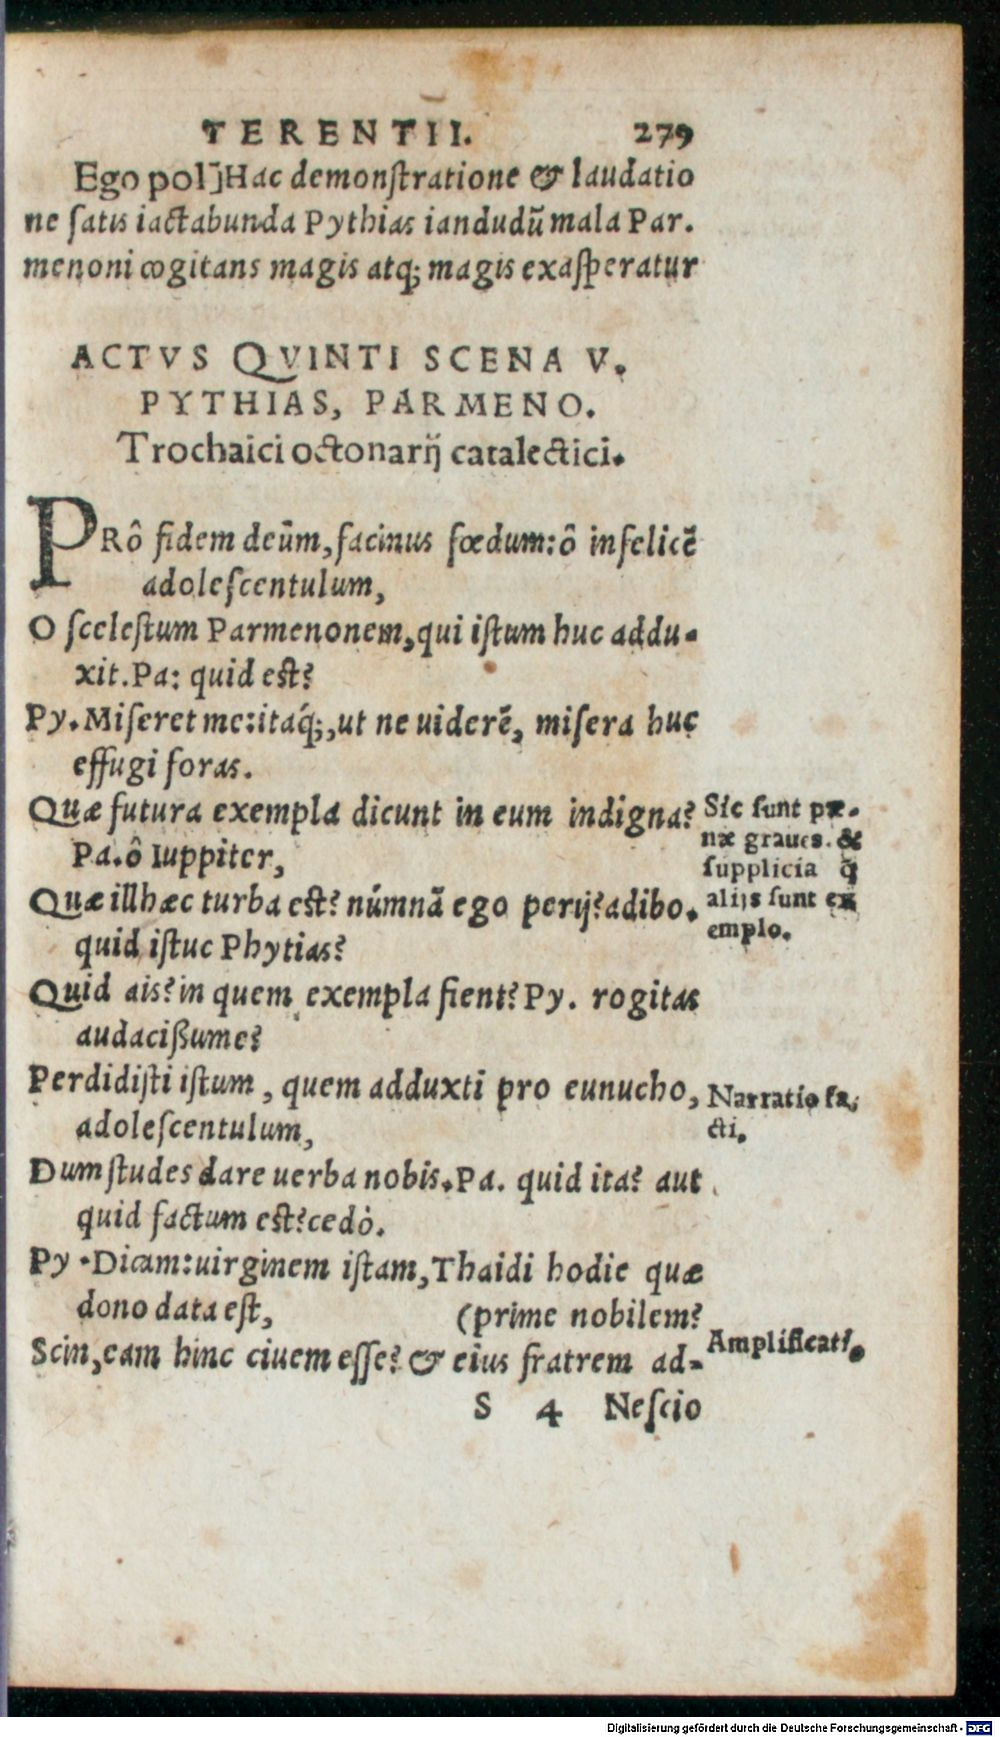 TERENTII. 279
Ego pol]Hac demonſtratione & laudatio
ne ſatis iactabunda Pythias iandudũ mala Par.
menoni cogitans magis atq; magis exaſperatur
ACTVS QVINTI SCENA V.
PYTHIAS, PARMENO.
Trochaici octonarij catalectici.
PRô fidem deûm, facinus fœdum: ô infelicẽ
adoleſcentulum,
O ſceleſtum Parmenonem, qui iſtum huc addu-
xit. Pa: quid est?
Py. Miſeret me: itaq́;, ut ne uiderẽ, miſera huc
effugi foras.
Quæ futura exempla dicunt in eum indigna?
Pa. ô Iuppiter,
Quæ illhæc turba est? númnã ego perij? adibo.
quid iſtuc Phytias?
Quid ais? in quem exempla fient? Py. rogitas
audacißume?
Perdidiſti iſtum, quem adduxti pro eunucho,
adoleſcentulum,
Dum ſtudes dare uerba nobis. Pa. quid ita? aut
quid factum est? cedò.
Py. Dicam: uirginem iſtam, Thaidi hodie quæ
dono data eſt, (prime nobilem?
Scin, eam hinc ciuem eſſe? & eius fratrem ad-
S 4 Neſcio
Sic ſunt pœ-
næ graues. &
ſupplicia q̃
alijs ſunt ex
emplo.
Narratio fa-
cti.
Amplificati.
Digitalisierung gefördert durch die Deutsche Forschungsgemeinschaft - DFG